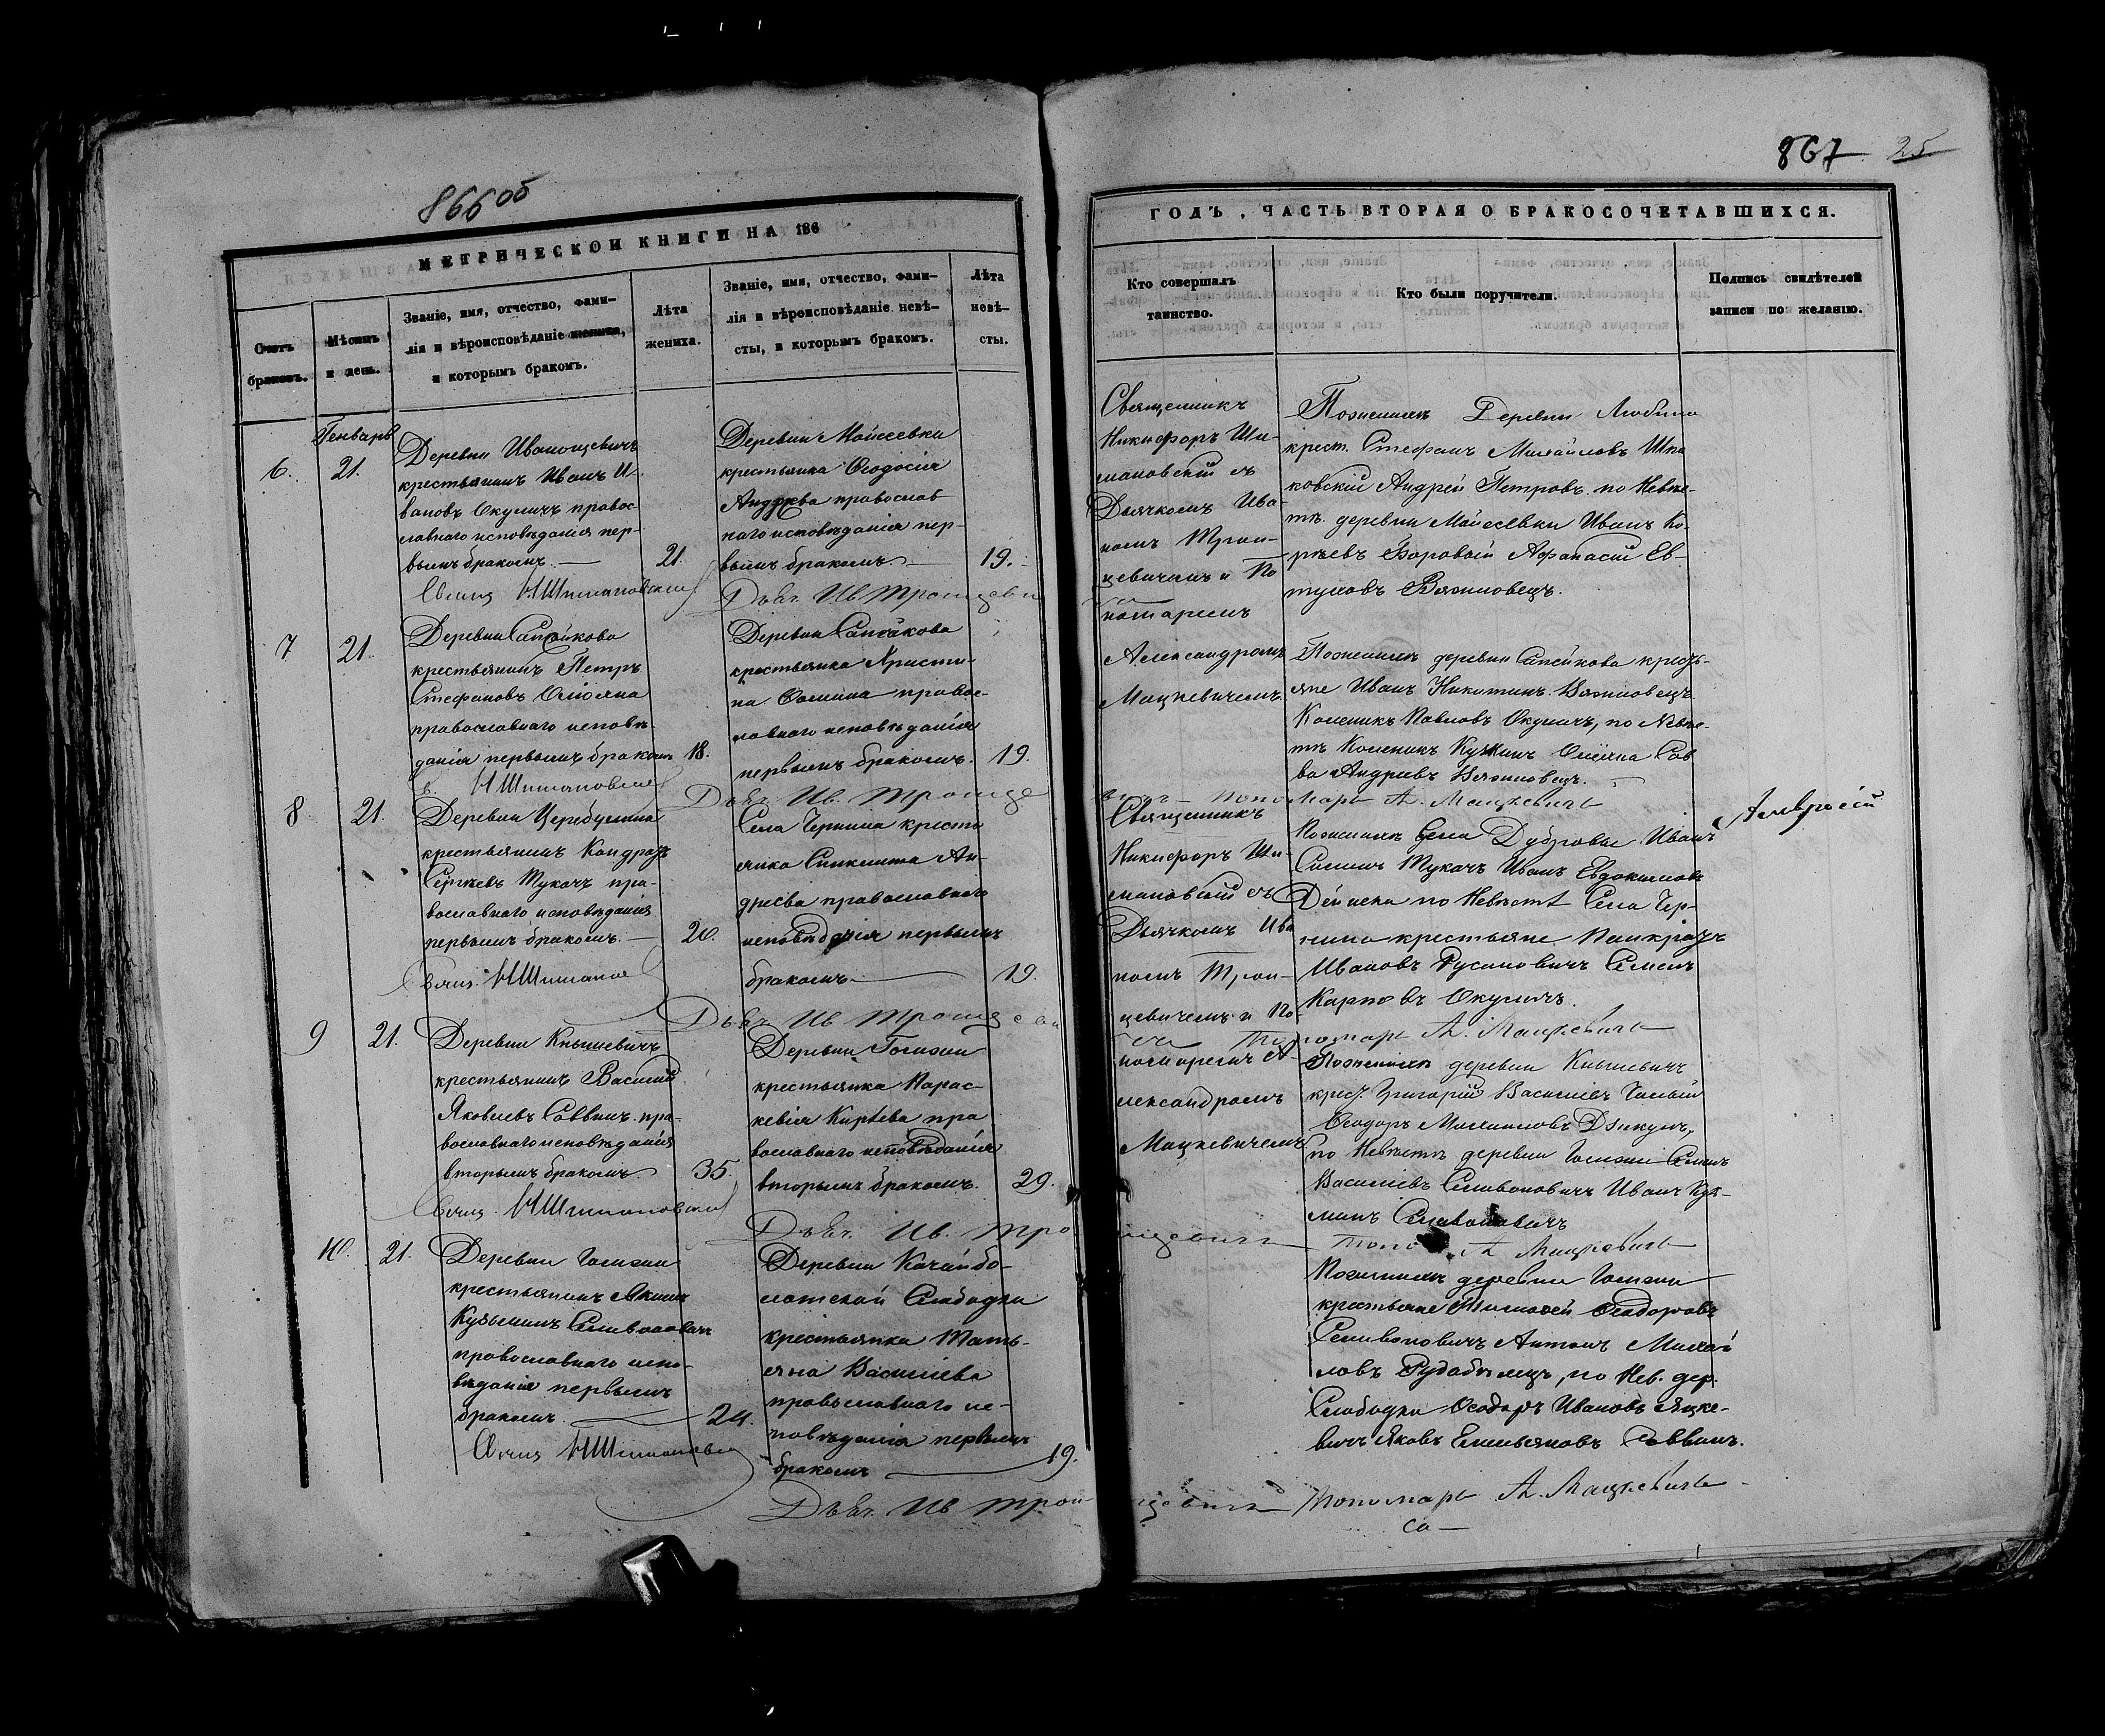 866об
МЕТРИЧЕСКОЙ КНИГИ НА 186
Счетъ
браковъ.
Мѣсяцъ
и день.
Званіе, имя, отчество, фами-
лія и вѣроисповѣданіе жениха,
и которымъ бракомъ.
Лѣта
жениха.
Званіе, имя, отчество, фами-
лія и вѣроисповѣданіе невѣ-
сты, и которымъ бракомъ.
Лѣта
невѣ-
сты.
Генварь
6.
21.
Деревни
крестьянинъ Иванъ И-
вановъ Окуличъ правос-
лавнаго исповѣданія пер-
вымъ бракомъ.
21.
Деревни Мойсеевки
крестьянка Ѳеодосія
Андреева православ
наго исповѣданія пер-
вымъ бракомъ.
19.
7
21.
Деревни Сапейкова
крестьянинъ Петръ
Стефановъ
православнаго исповѣ-
данія первымъ бракомъ
18.
Деревни Сапейкова
крестьянка Христи-
на Ѳомина правос-
лавнаго исповѣданія
первымъ бракомъ.
19.
8.
21.
Деревни
крестьянинъ Кондратъ
Сергѣевъ Тукачъ пра-
вославнаго исповѣданія
первымъ бракомъ.
20.
Села Чернина кресть
янка Синклита Ан-
дреева православнаго
исповѣданія первымъ
бракомъ
19.
9
21.
Деревни Кнышевичъ
крестьянинъ Василій
Яковлевъ Саввинъ пра-
вославнаго исповѣданія
вторымъ бракомъ.
35.
Деревни
крестьянка Парас-
кевія Кирѣева пра
вославнаго исповѣданія
вторымъ бракомъ.
29.
10.
21.
Деревни
крестьянинъ Якимъ
Кузьминъ Селивоновичъ
православнаго испо-
вѣданія первымъ
бракомъ.
24.
Деревни Качайбо-
лотской Слободки
крестьянка Тать-
яна Василіева
православнаго ис-
повѣданія первымъ
бракомъ
19.
867 25
ГОДЪ, ЧАСТЬ ВТОРАЯ О БРАКОСОЧЕТАВШИХСЯ.
Кто совершалъ
таинство.
Кто были поручители.
Подпись свидѣтелей
записи по желанію.
Священникъ
Никифоръ Ши-
мановскій съ
Дьячкомъ Ива
номъ Трои-
цевичемъ и По
номаремъ
Александромъ
Мацкевичемъ
По женихѣ Деревни Любани
крест. Стефанъ Михайловъ Шпа
ковскій Андрей Петровъ по Невѣс-
тѣ деревни Мойсеевки Иванъ Ко-
рнѣевъ Боровой Афанасій Ев-
туховъ Вяжновецъ.
По женихѣ деревни Сапейкова кресть-
яне Иванъ Никитинъ Вяжновецъ
Павловъ Окуличъ, по Невѣс-
тѣ Кузминъ Сав
ва Андреевъ Вяжновецъ.
Пономарь А. Мацкевичъ
Священникъ
Никифоръ Ши-
мановскій съ
Дьячкомъ Ива
номъ Трои-
цевичемъ и По-
номаремъ А-
лександромъ
Мацкевичемъ
По женихѣ Села Дубровы Иванъ
Тукачъ Иванъ Евдокимовъ
по Невѣстѣ Села Чер-
нина крестьяне Панкратъ
Ивановъ Русановичъ Семенъ
Карповъ Окуличъ.
Пономарь А. Мацкевичъ
По женихѣ деревни Кнышевичъ
крест. Григорій Василіевъ
Ѳеодоръ
по Невѣстѣ деревни Семенъ
Василіевъ Селивоновичъ Иванъ Куз-
минъ Селивоновичъ
А Мацкевичъ
По женихѣ деревни
крестьяне Тимоѳей Ѳеодоровъ
Селивоновичъ Антонъ Михай
ловъ по Нев. дер.
Слободки Ѳеодоръ Ивановъ Яцке-
вичъ Яковъ Емельяновъ Саввинъ.
Пономарь А. Мацкевичъ